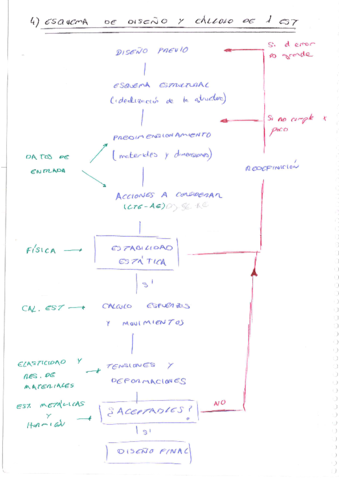 4) ESQUEMA DE DISEÑO Y CÁLCULO DE 1 EST
DISEÑO PREVIO
Si el error
es grande
ESQUEMA ESTRUCTURAL
(idealización de la estructura)
Si no cumple x
poco
PREDIMENSIONAMIENTO
(materiales y dimensiones)
DATOS DE
ENTRADA
REDEFINICIÓN
ACCIONES A CONSIDERAR
(CTE-AE)
FÍSICA
ESTABILIDAD
ESTÁTICA
SÍ
CAL. EST
CÁLCULO ESFUERZOS
Y MOVIMIENTOS
ELASTICIDAD Y
RES. DE
MATERIALES
TENSIONES Y
DEFORMACIONES
EST. METÁLICAS
Y
HORMIGÓN
¿ACEPTABLES?
NO
SÍ
DISEÑO FINAL